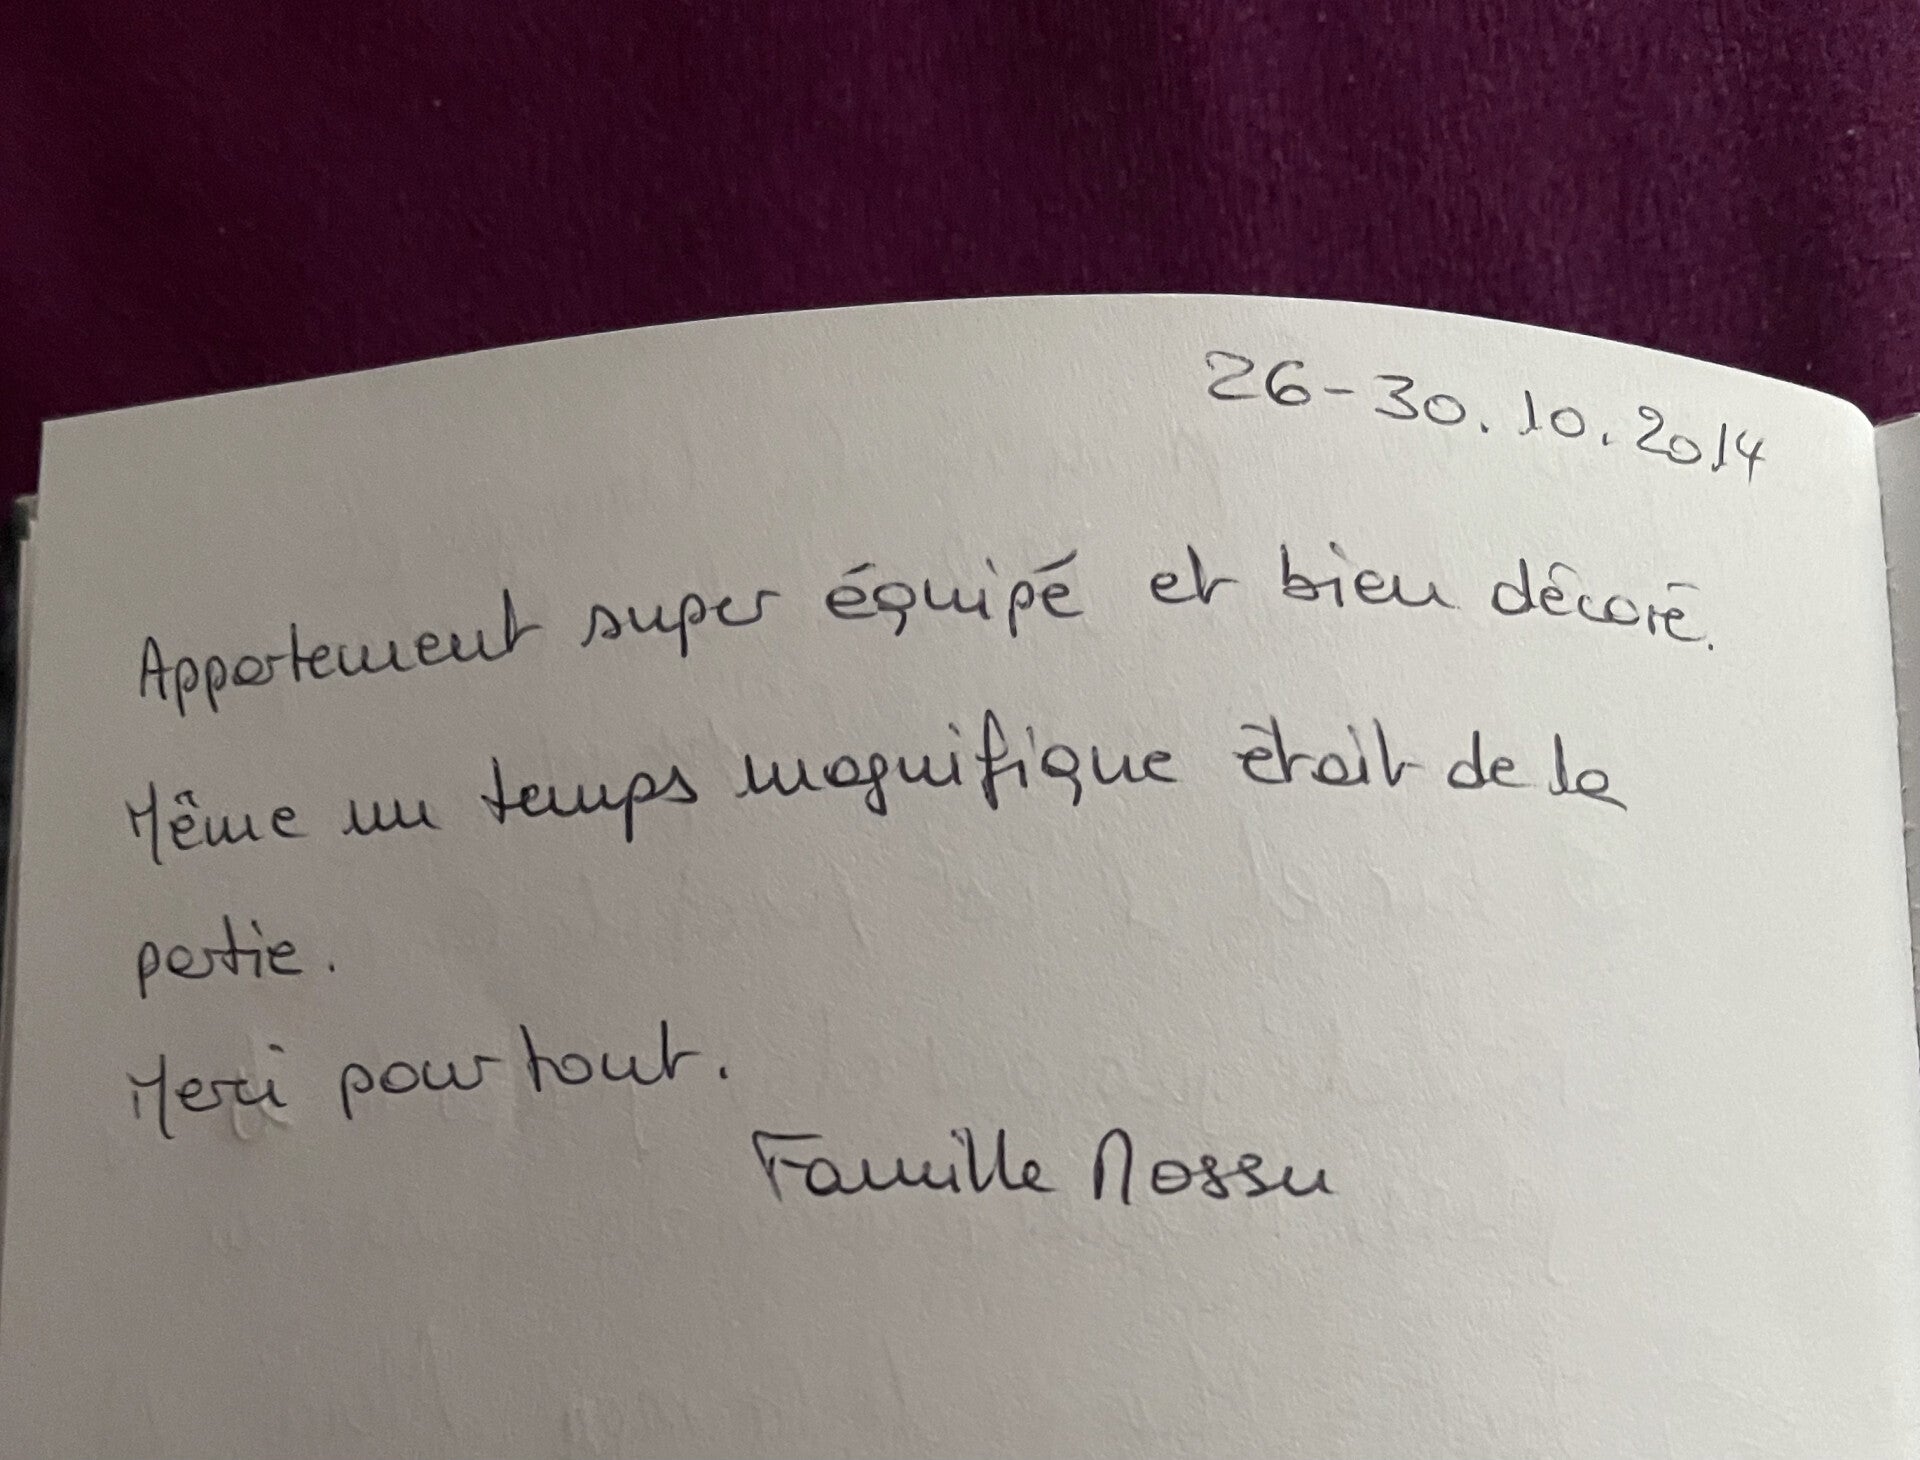 26-30.10.2014
Appartement super équipé et bien décoré.
Même un temps magnifique était de la
partie.
Merci pour tout.
Famille Mossu